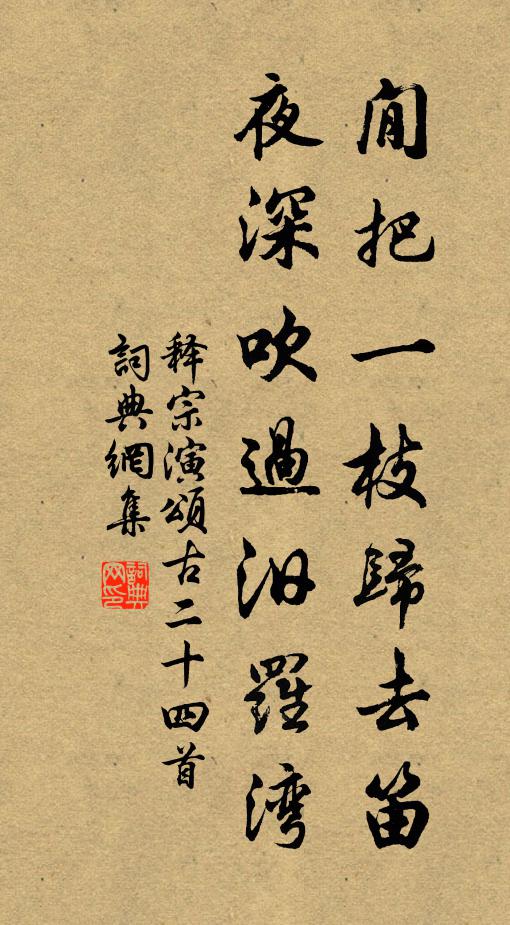 閒把一枝歸去笛
夜深吹過汨羅湾
释宗演頌古二十四首
詞典網集
詞典
网印